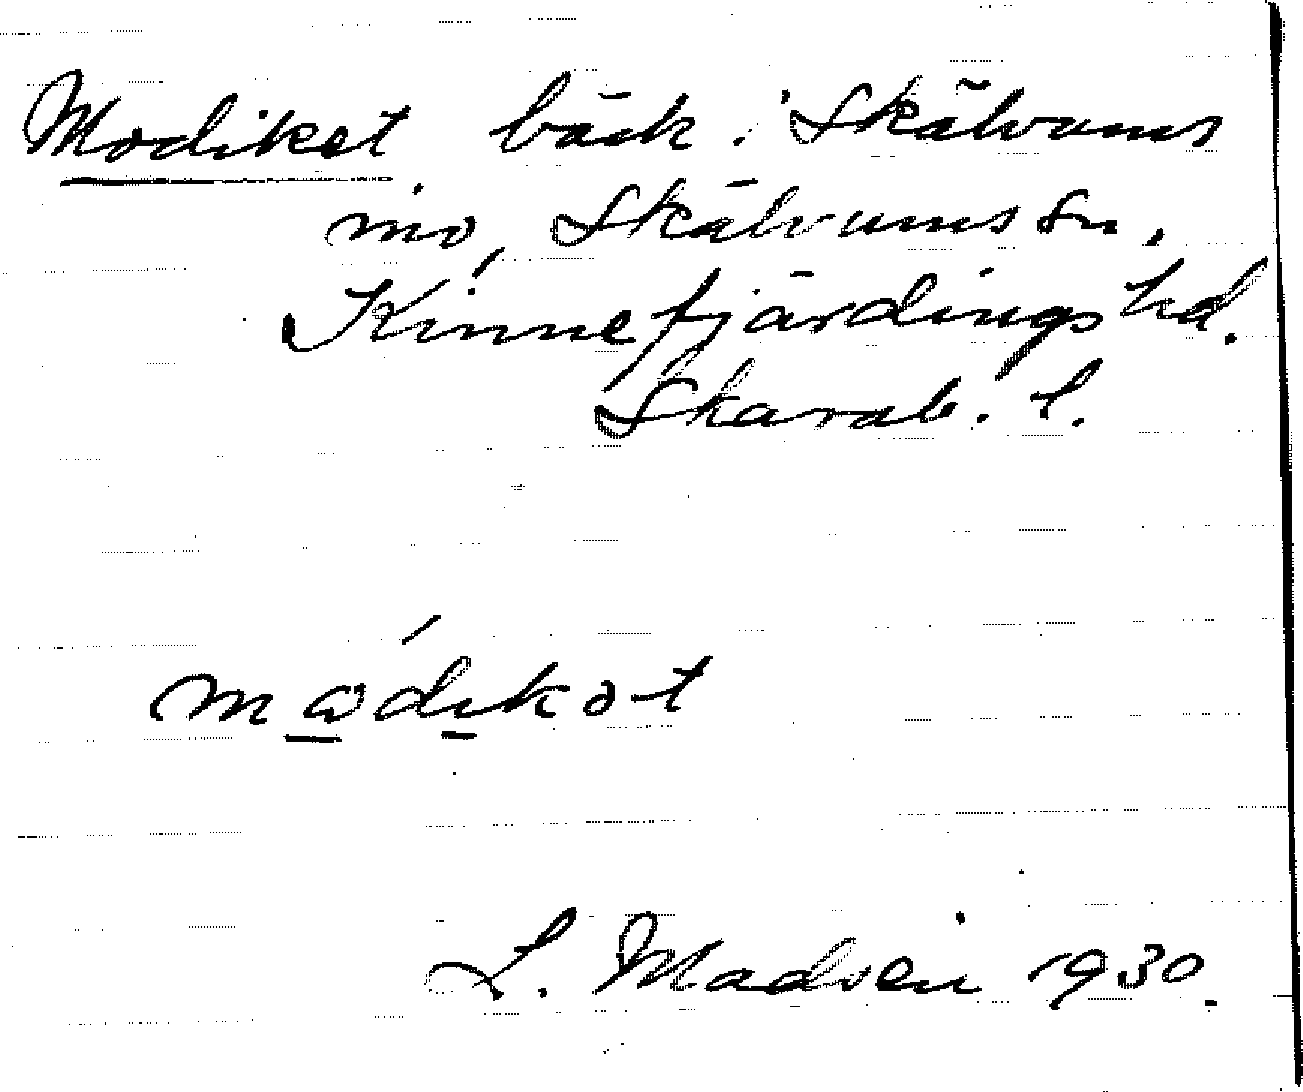 Modiket bäck i Skälvums
mo, Skälvums sn,
Kinnefjärdings hd.
Skarab. l.
mωdikət
L. Madsén 1930.